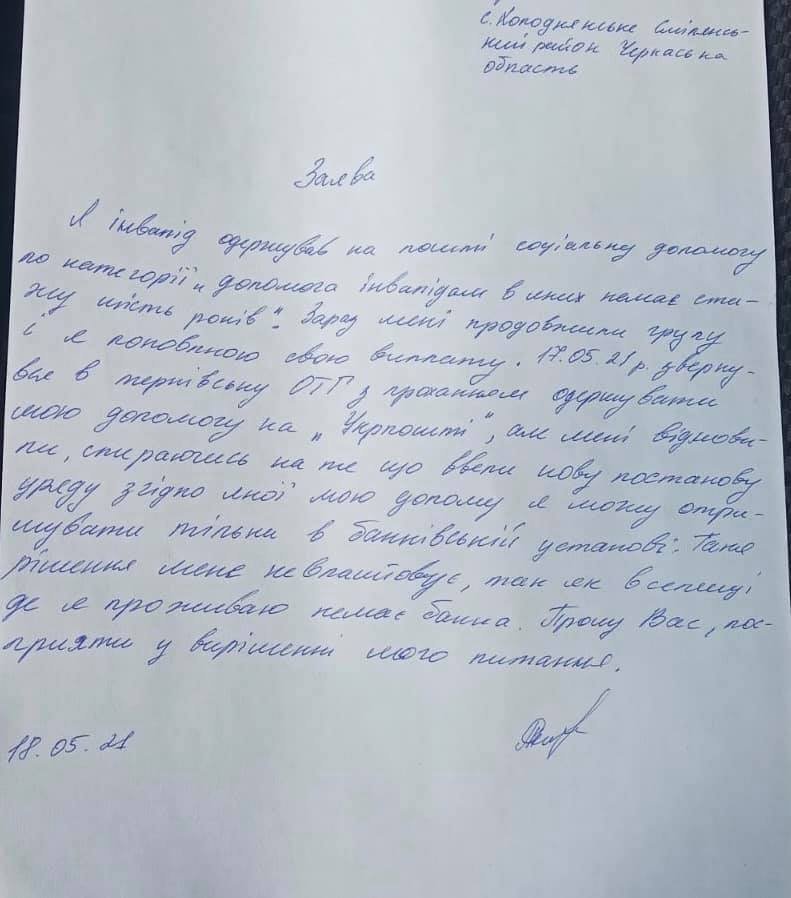 с. Холоднянське Смілянсь-
кий район Черкаська
область
Заява
Я інвалід одержував на пошті соціальну допомогу
по категорії „допомога інвалідам в яких немає ста-
жу шість років". Зараз мені продовжили групу
і я поновлюю свою виплату. 17.05.21 р. зверну-
вся в тернівську ОТГ з проханням одержувати
мою допомогу на „Укрпошті", але мені віднови-
ли, спираючись на те що ввели нову постанову
уряду згідно якої мою допому я можу отри-
мувати тільки в банківській установі. Таке
рішення мене не влаштовує, так як в селищі
де я проживаю немає банка. Прошу Вас, пос-
прияти у вирішенні мого питання.
18.05.21